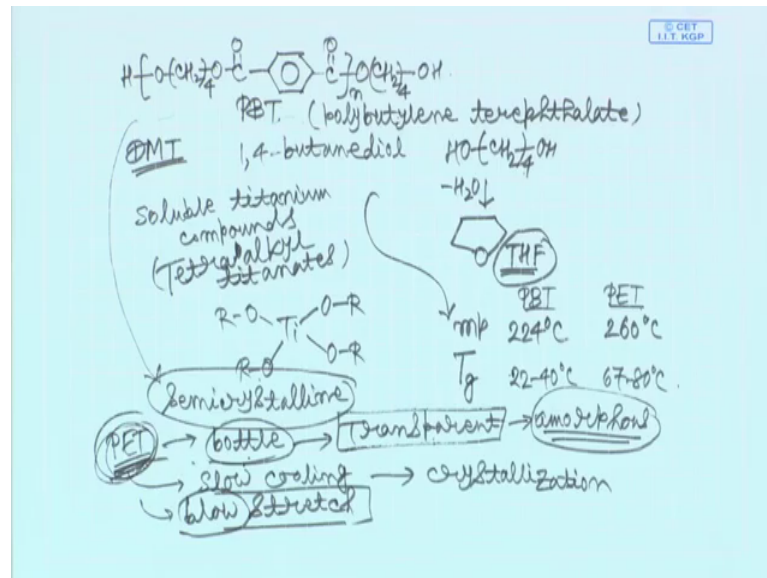 © CET
I.I.T. KGP
H-[-O-(CH2)4-O-C(=O)-⌬-C(=O)-]n-O-(CH2)4-OH.
PBT. (polybutylene terephthalate)
DMT 1,4-butanediol HO-(CH2)4-OH
-H2O↓
Soluble titanium
compounds
(Tetraalkyl
titanates)
O THF
PBT PET
R-O Ti O-R
R-O O-R
mp 224°C 260°C
Tg 22-40°C 67-80°C.
Semicrystalline
PET → bottle → Transparent → amorphous
→ slow cooling → crystallization
→ blow stretch